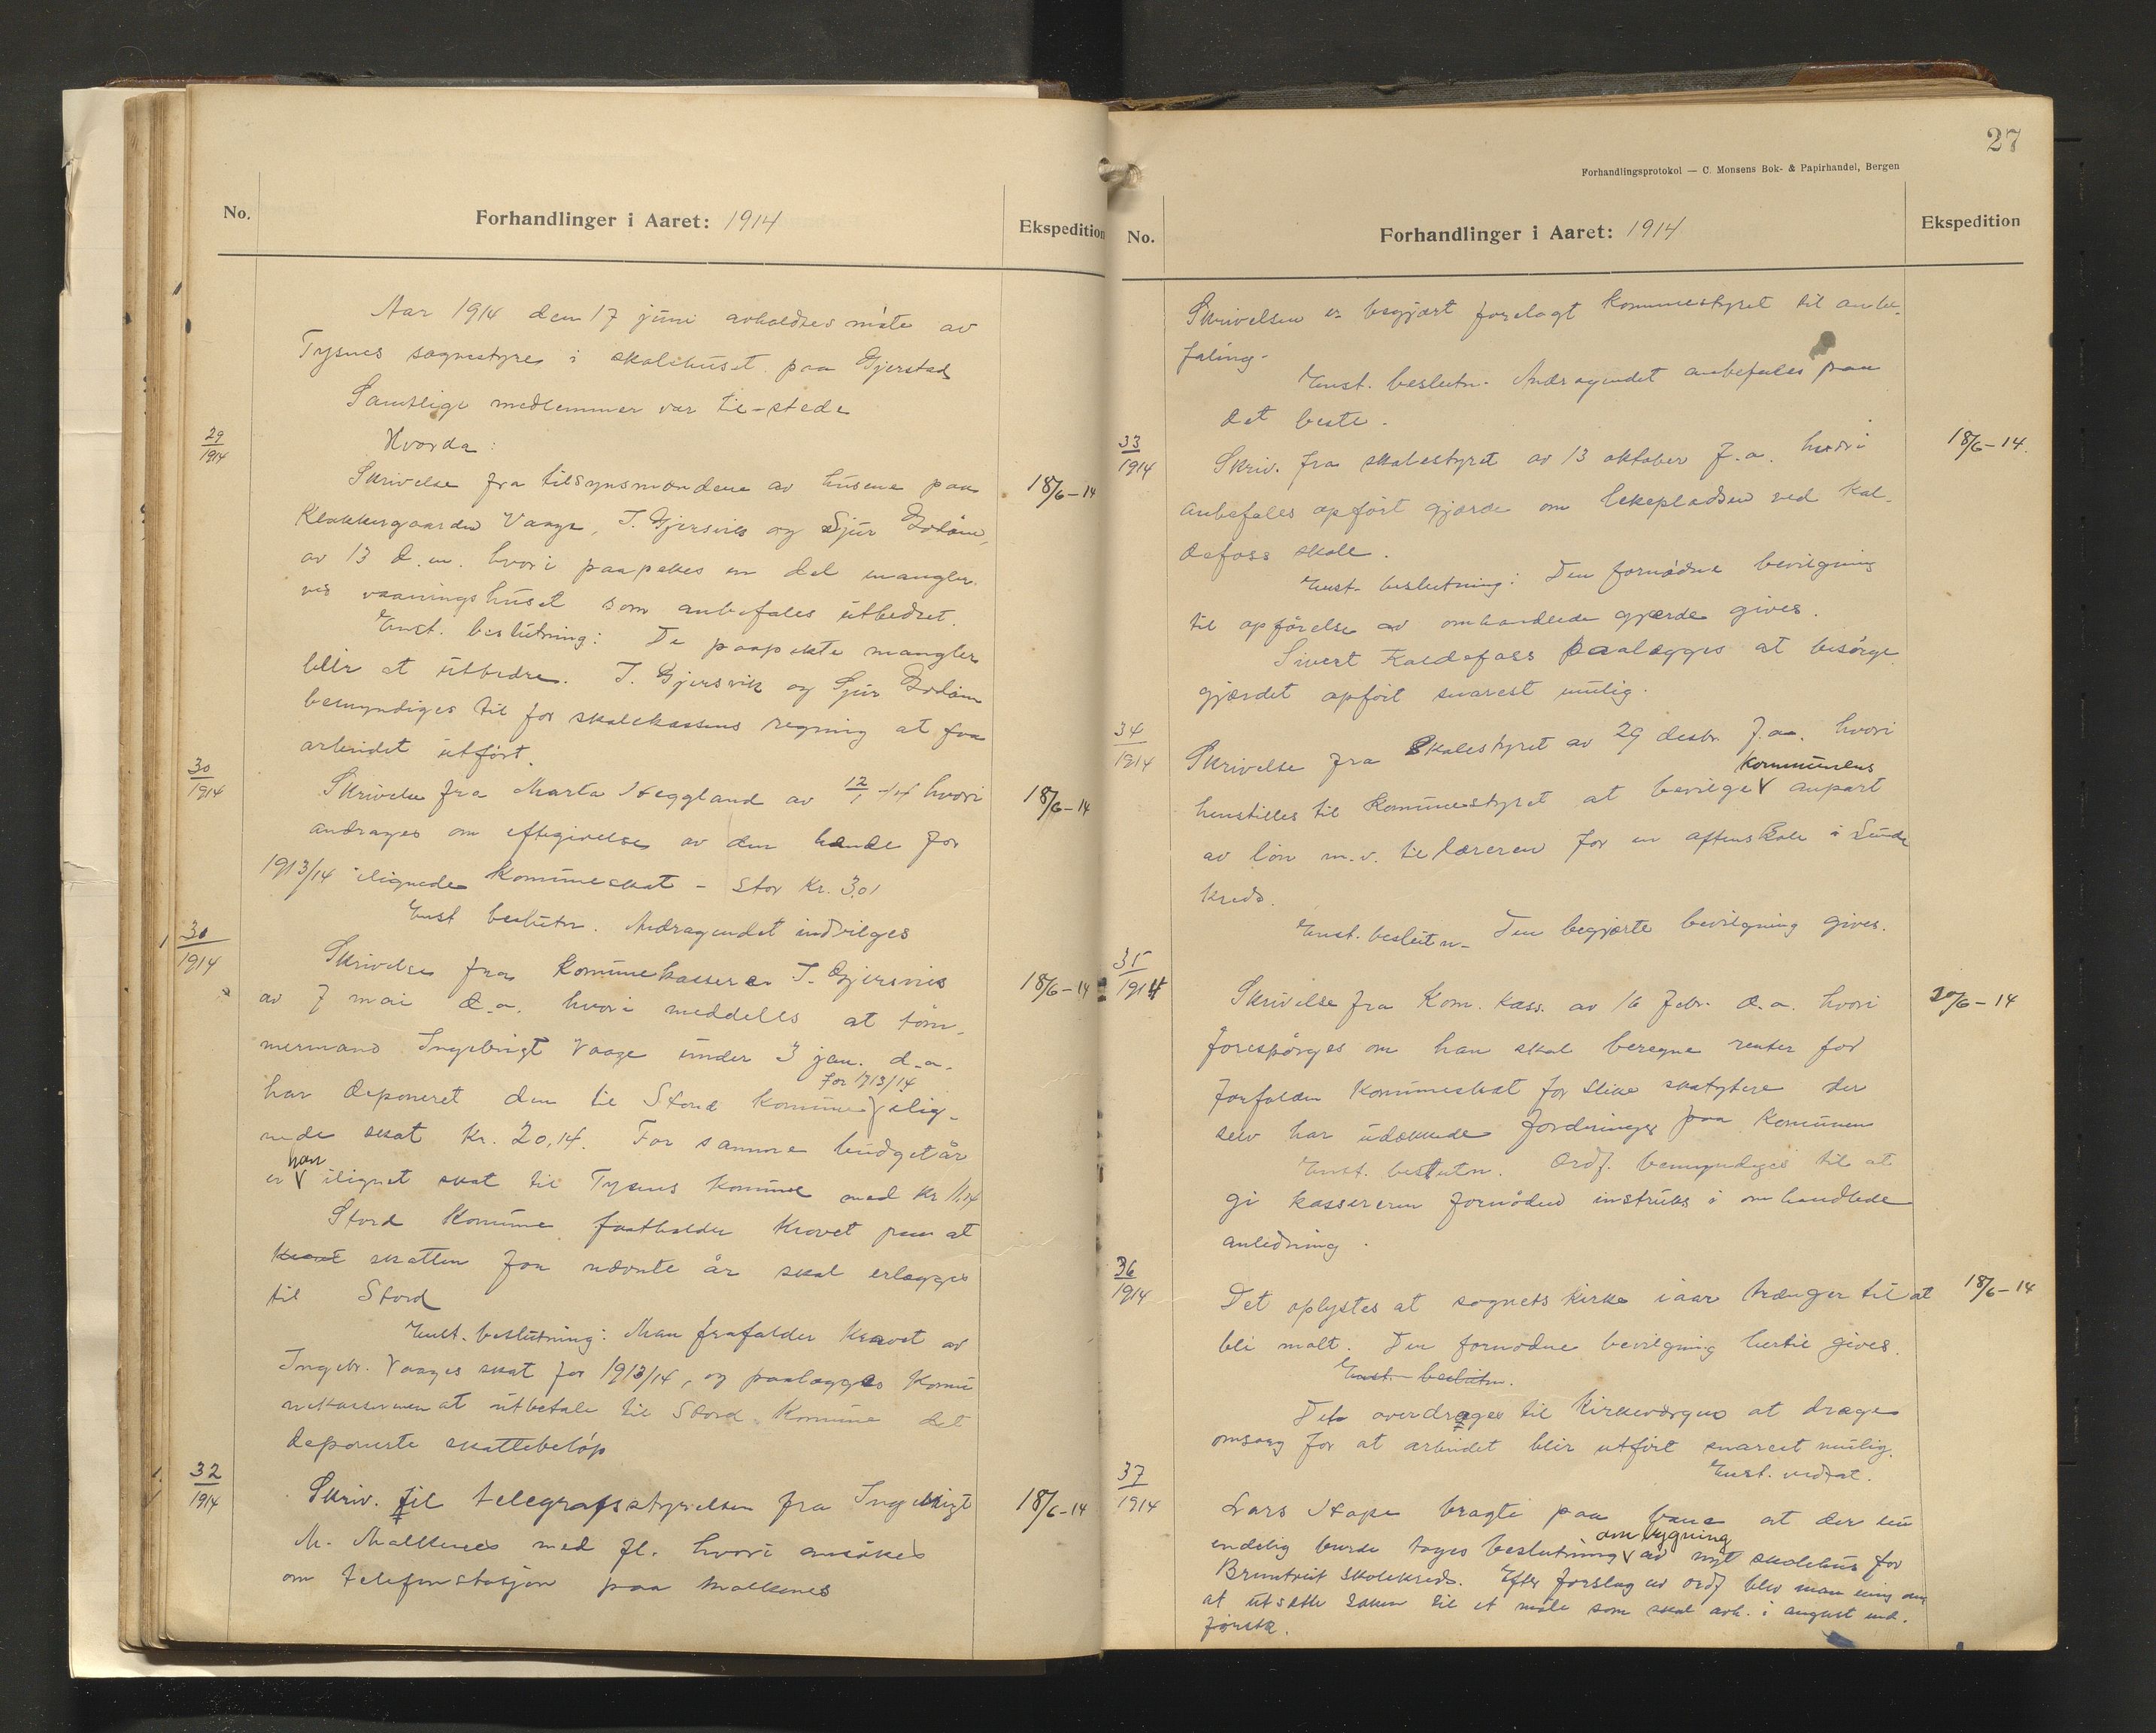 No.
Forhandlinger i Aaret: 1914
Ekspedition
Aar 1914 den 17 juni avholdtes møte av
Tysnes sognestyre i skolehuset paa Gjerstad
Samtlige medlemmer var til-stede
Hvorda:
29
1914
Skrivelse fra tilsynsmændene av husene paa
18/6-14
Klokkergaarden Vaage, T. Gjersvik og Sjur
av 13 d.m. hvori paapekes en del mangler
ved vaaningshuset som anbefales utbedret.
Enst. beslutning: De paapekte mangler
blir at utbedre. T. Gjersvik og Sjur
bemyndiges til for skolekassens regning at faa
arbeidet utført.
30
1914
Skrivelse fra Marta Heggland av 12/1 -14 hvori
18/6-14
andrages om eftergivelse av den hende for
1913/14 ilignede kommuneskat - stor Kr. 3,01
Enst beslutn. Andragendet indvilges
31
1914
Skrivelse fra Kommunekasserer T. Gjersvik
18/6-14
av 7 mai d.a. hvori meddeles at tøm-
mermand Ingebrigt Vaage under 3 jan. d.a.
for 1913/14
har deponeret den til Stord kommune ilig-
nede skat kr. 20,14. For samme budgetår
han
er ilignet skat til Tysnes kommune med kr
Stord Kommune fastholder kravet paa at
kravet skatten for nævnte år skal erlægges
til Stord
Enst. beslutning: Man frafalder kravet av
Ingebr. Vaages skat for 1913/14, og paalægges Kommu
nekassereren at utbetale til Stord Kommune det
deponerte skattebeløp
32
1914
Skriv. til telegrafstyrelsen fra Ingebrigt
18/6-14
M. Malkenes med fl. hvori ansøkes
om telefonstasjon paa Malkenes
27
Forhandlingsprotokol — C. Monsens Bok- & Papirhandel, Bergen
No.
Forhandlinger i Aaret: 1914
Ekspedition
Skrivelsen er begjært forelagt kommunestyret til anbe-
faling.
Enst. beslutn. Andragendet anbefales paa
det beste.
33
1914
Skriv. fra skolestyret av 13 oktober f.a. hvori
18/6-14.
anbefales opført gjærde om lekepladsen ved Kal-
defoss skole.
Enst. beslutning: Den fornødne bevilgning
til opførelse av omhandlede gjærde gives.
Sivert Kaldefoss paalægges at besørge
gjærdet opført snarest mulig.
34
1914
Skrivelse fra Skolestyret av 29 desbr. f.a. hvori
kommunens
henstilles til Kommunestyret at bevilge anpart
av løn m.v. til læreren for en aftenskole i Sunde
kreds.
Enst. beslutn. Den begjærte bevilgning gives.
35
1914
Skrivelse fra Kom. kass. av 16 febr. d.a. hvori
20/6-14
forespørges om han skal beregne renter for
forfalden kommuneskat for slike skatytere der
selv har udækkede fordringer paa kommunen
Enst. beslutn. Ordf. bemyndiges til at
gi kassereren fornøden instruks i omhandlede
anledning.
36
1914
Det oplystes at sognets kirke iaar trænger til at
18/6-14
bli malt. Den fornødne bevilgning hertil gives.
Enst. beslutn.
Det overdrages til Kirkeværgen at drage
omsorg for at arbeidet blir utført snarest mulig.
Enst. vedtat.
37
1914
Lars Hope bragte paa bane at der nu
om bygning
endelig burde tages beslutning av nyt skolehus for
Bruntveit skolekreds. Efter forslag av ordf blev man enig om
at utsætte saken til et møte som skal avh. i august md.
førstk.